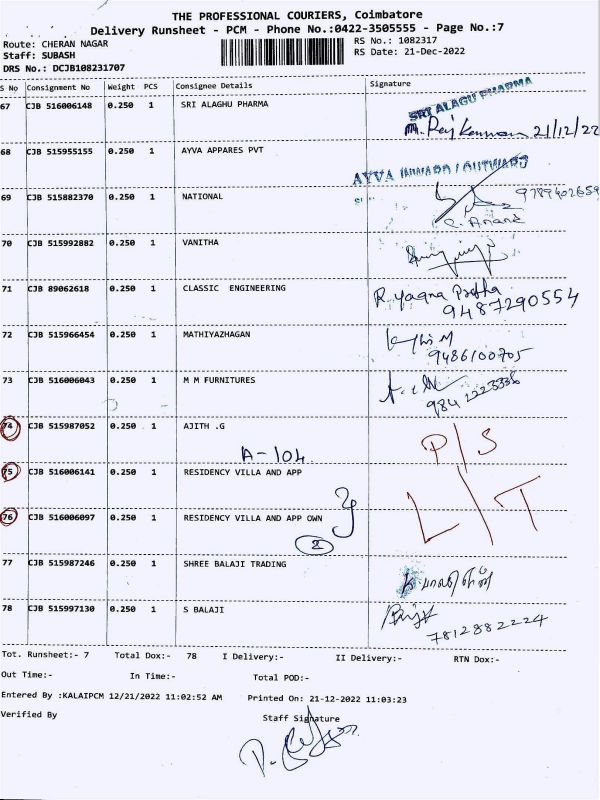 THE PROFESSIONAL COURIERS, Coimbatore
Delivery Runsheet - PCM - Phone No.:0422-3505555 - Page No.:7
Route: CHERAN NAGAR RS No.: 1082317
Staff: SUBASH RS Date: 21-Dec-2022
DRS No.: DCJB108231707
S No Consignment No Weight PCS Consignee Details Signature
67 CJB 516006148 0.250 1 SRI ALAGHU PHARMA SRI ALAGU PHARMA
21/12/22
68 CJB 515955155 0.250 1 AYVA APPARES PVT
AYVA INWARD / OUTWARD
69 CJB 515882370 0.250 1 NATIONAL 9789402659
C. Anand
70 CJB 515992882 0.250 1 VANITHA
71 CJB 89062618 0.250 1 CLASSIC ENGINEERING R. Yagna Prabha
9487290554
72 CJB 515966454 0.250 1 MATHIYAZHAGAN
9486100705
73 CJB 516006043 0.250 1 M M FURNITURES
74 CJB 515987052 0.250 1 AJITH .G P/S
A-104
75 CJB 516006141 0.250 1 RESIDENCY VILLA AND APP L/T
76 CJB 516006097 0.250 1 RESIDENCY VILLA AND APP OWN
2
77 CJB 515987246 0.250 1 SHREE BALAJI TRADING
78 CJB 515997130 0.250 1 S BALAJI
7812882224
Tot. Runsheet:- 7 Total Dox:- 78 I Delivery:- II Delivery:- RTN Dox:-
Out Time:- In Time:- Total POD:-
Entered By :KALAIPCM 12/21/2022 11:02:52 AM Printed On: 21-12-2022 11:03:23
Verified By Staff Signature